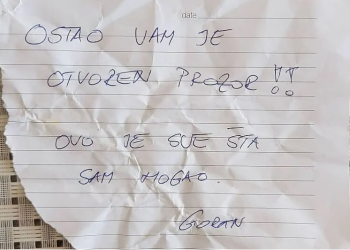 date
OSTAO VAM JE
OTVOREN PROZOR !!
OVO JE SVE ŠTA
SAM MOGAO.
GORAN